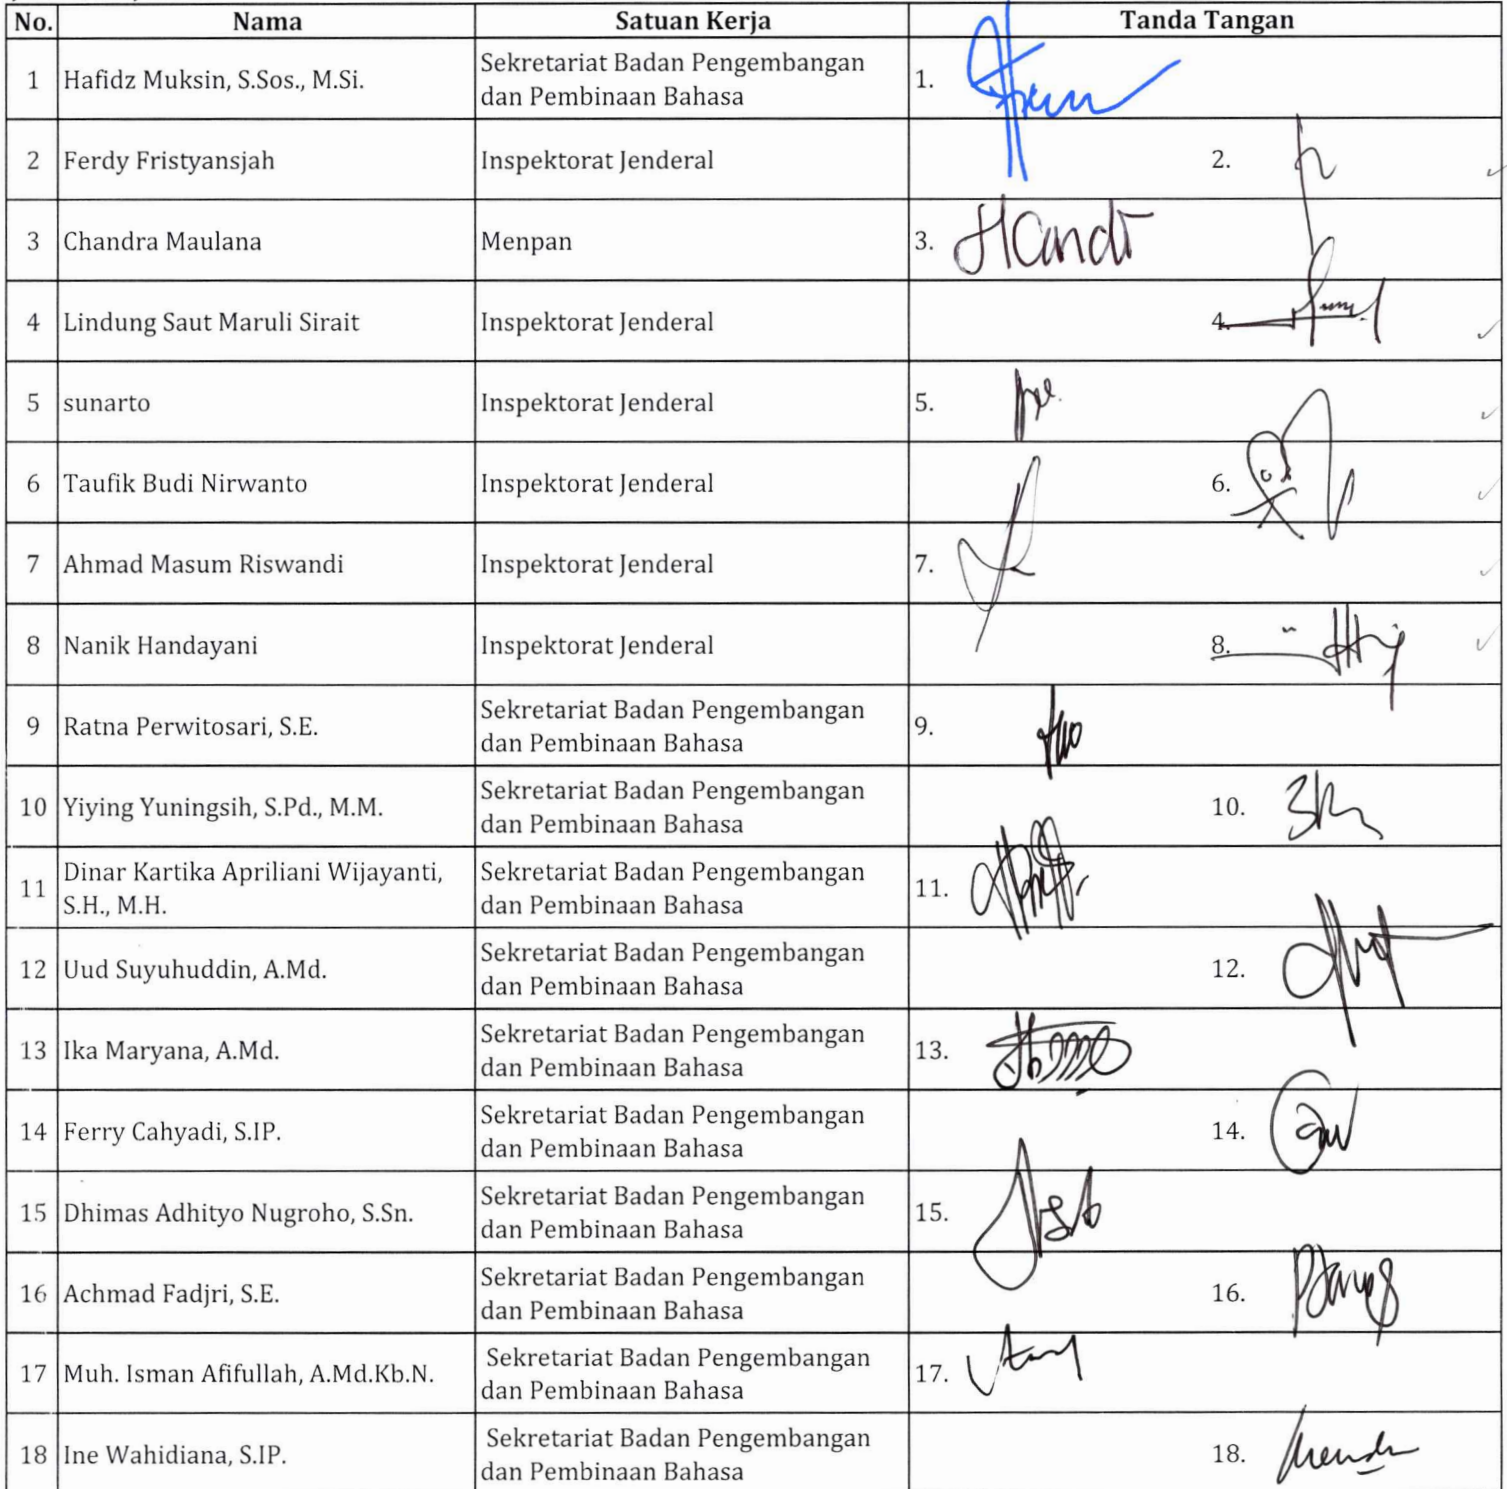 No. Nama Satuan Kerja Tanda Tangan
1 Hafidz Muksin, S.Sos., M.Si. Sekretariat Badan Pengembangan
dan Pembinaan Bahasa 1.
2 Ferdy Fristyansjah Inspektorat Jenderal 2.
3 Chandra Maulana Menpan 3.
4 Lindung Saut Maruli Sirait Inspektorat Jenderal 4.
5 sunarto Inspektorat Jenderal 5.
6 Taufik Budi Nirwanto Inspektorat Jenderal 6.
7 Ahmad Masum Riswandi Inspektorat Jenderal 7.
8 Nanik Handayani Inspektorat Jenderal 8.
9 Ratna Perwitosari, S.E. Sekretariat Badan Pengembangan
dan Pembinaan Bahasa 9.
10 Yiying Yuningsih, S.Pd., M.M. Sekretariat Badan Pengembangan
dan Pembinaan Bahasa 10.
11 Dinar Kartika Apriliani Wijayanti,
S.H., M.H. Sekretariat Badan Pengembangan
dan Pembinaan Bahasa 11.
12 Uud Suyuhuddin, A.Md. Sekretariat Badan Pengembangan
dan Pembinaan Bahasa 12.
13 Ika Maryana, A.Md. Sekretariat Badan Pengembangan
dan Pembinaan Bahasa 13.
14 Ferry Cahyadi, S.IP. Sekretariat Badan Pengembangan
dan Pembinaan Bahasa 14.
15 Dhimas Adhityo Nugroho, S.Sn. Sekretariat Badan Pengembangan
dan Pembinaan Bahasa 15.
16 Achmad Fadjri, S.E. Sekretariat Badan Pengembangan
dan Pembinaan Bahasa 16.
17 Muh. Isman Afifullah, A.Md.Kb.N. Sekretariat Badan Pengembangan
dan Pembinaan Bahasa 17.
18 Ine Wahidiana, S.IP. Sekretariat Badan Pengembangan
dan Pembinaan Bahasa 18.